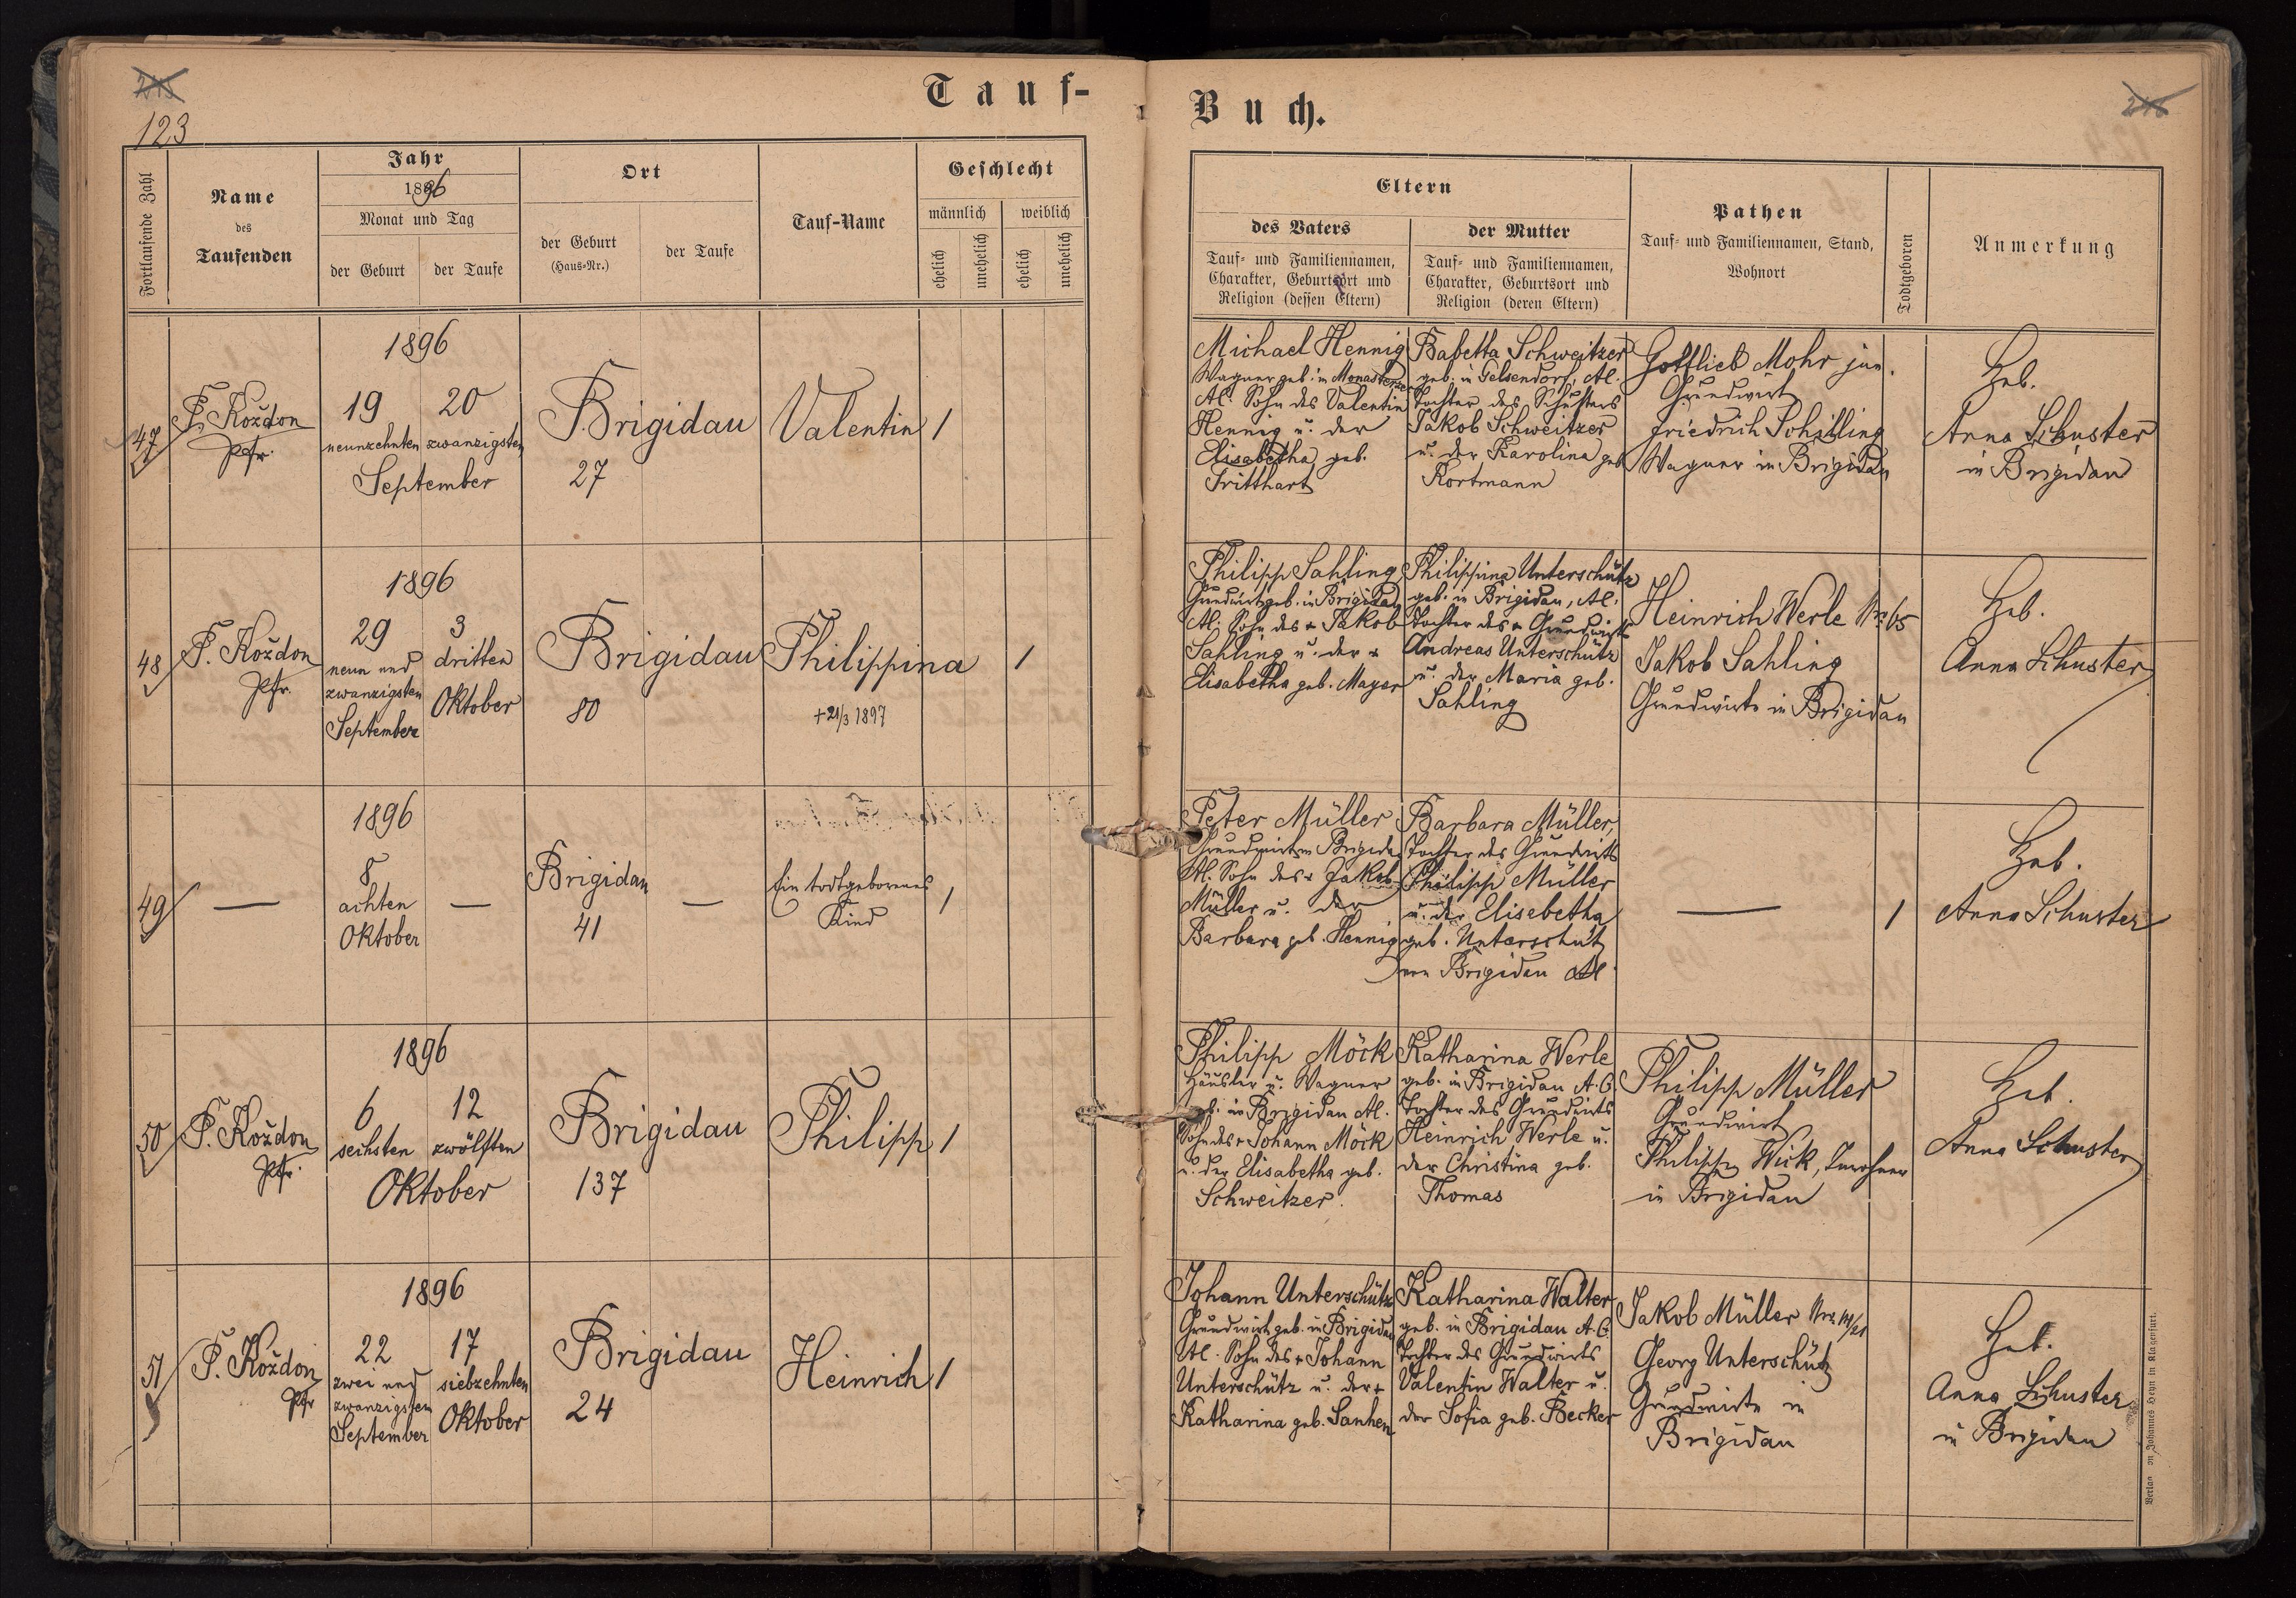 245
123
Tauf-
Fortlaufende Zahl
Name
des
Taufenden
Jahr
1896
Monat und Tag
der Geburt
der Taufe
Ort
der Geburt
(Haus-Nr.)
der Taufe
Tauf-Name
Geschlecht
männlich
weiblich
ehelich
unehelich
ehelich
unehelich
47
P. Koždon
Pfr.
1896
19 20
neunzehnten zwanzigsten
September
Brigidau
27
Valentin
1
48
P. Koždon
Pfr.
1896
29
neun und
zwanzigsten
September
3
dritten
Oktober
Brigidau
80
Philippina
+ 21/3 1897
1
49
—
1896
8
achten
Oktober
—
Brigidau
41
—
Ein todtgeborenes
Kind
1
50
P. Koždon
Pfr.
1896
6 12
sechsten zwölften
Oktober
Brigidau
137
Philipp
1
51
P. Koždon
Pfr
1896
22
zwei und
zwanzigsten
September
17
siebzehnten
Oktober
Brigidau
24
Heinrich
1
Buch.
246
Eltern
des Vaters
Tauf- und Familiennamen,
Charakter, Geburtsort und
Religion (dessen Eltern)
der Mutter
Tauf- und Familiennamen,
Charakter, Geburtsort und
Religion (deren Eltern)
Pathen
Tauf- und Familiennamen, Stand,
Wohnort
Todtgeboren
Anmerkung
Michael Hennig
Wagner geb. in
Al. Sohn des Valentin
Hennig u. der
Elisabetha geb.
Fritthart
Babetta Schweitzer
geb. in Gelsendorf, Al.
Tochter des Schusters
Jakob Schweitzer
u. der Karolina geb
Kortmann
Gottlieb Mohr jun.
Grundwirt
Friedrich Schilling
Wagner in Brigidau
Heb.
Anna Schuster
in Brigidau
Philipp Sahling
Grundwirt geb. in Brigidau
Al. Sohn des + Jakob
Sahling u. der +
Elisabetha geb. Mayer
Philippina Unterschütz
geb. in Brigidau, Al.
Tochter des + Grundwirts
Andreas Unterschütz
u. der Maria geb.
Sahling
Heinrich Werle Nr. 65
Jakob Sahling
Grundwirte in Brigidau
Heb.
Anna Schuster
Peter Müller
Grundwirt in Brigidau
Al. Sohn des + Jakob
Müller u. der
Barbara geb. Hennig
Barbara Müller,
Tochter des Grundwirts
Philipp Müller
u. der Elisabetha
geb. Unterschütz
von Brigidau Al.
—
1
Heb.
Anna Schuster
Philipp Möck
Häusler u. Wagner
geb. in Brigidau Al.
Sohn des + Johann Möck
u. der Elisabetha geb.
Schweitzer.
Katharina Werle
geb. in Brigidau A. C.
Tochter des Grundwirts
Heinrich Werle u.
der Christina geb.
Thomas
Philipp Müller
Grundwirt
Philipp Wick, Inwohner
in Brigidau
Heb.
Anna Schuster
Johann Unterschütz
Grundwirt geb. in Brigidau
Al. Sohn des + Johann
Unterschütz u. der +
Katharina geb. Sanhen
Katharina Walter
geb. in Brigidau A. C.
Tochter des Grundwirts
Valentin Walter u.
der Sofia geb. Becker
Jakob Müller
Georg Unterschütz
Grundwirte in
Brigidau
Heb.
Anna Schuster
in Brigidau
Verlag von Johannes Heyn in Klagenfurt.